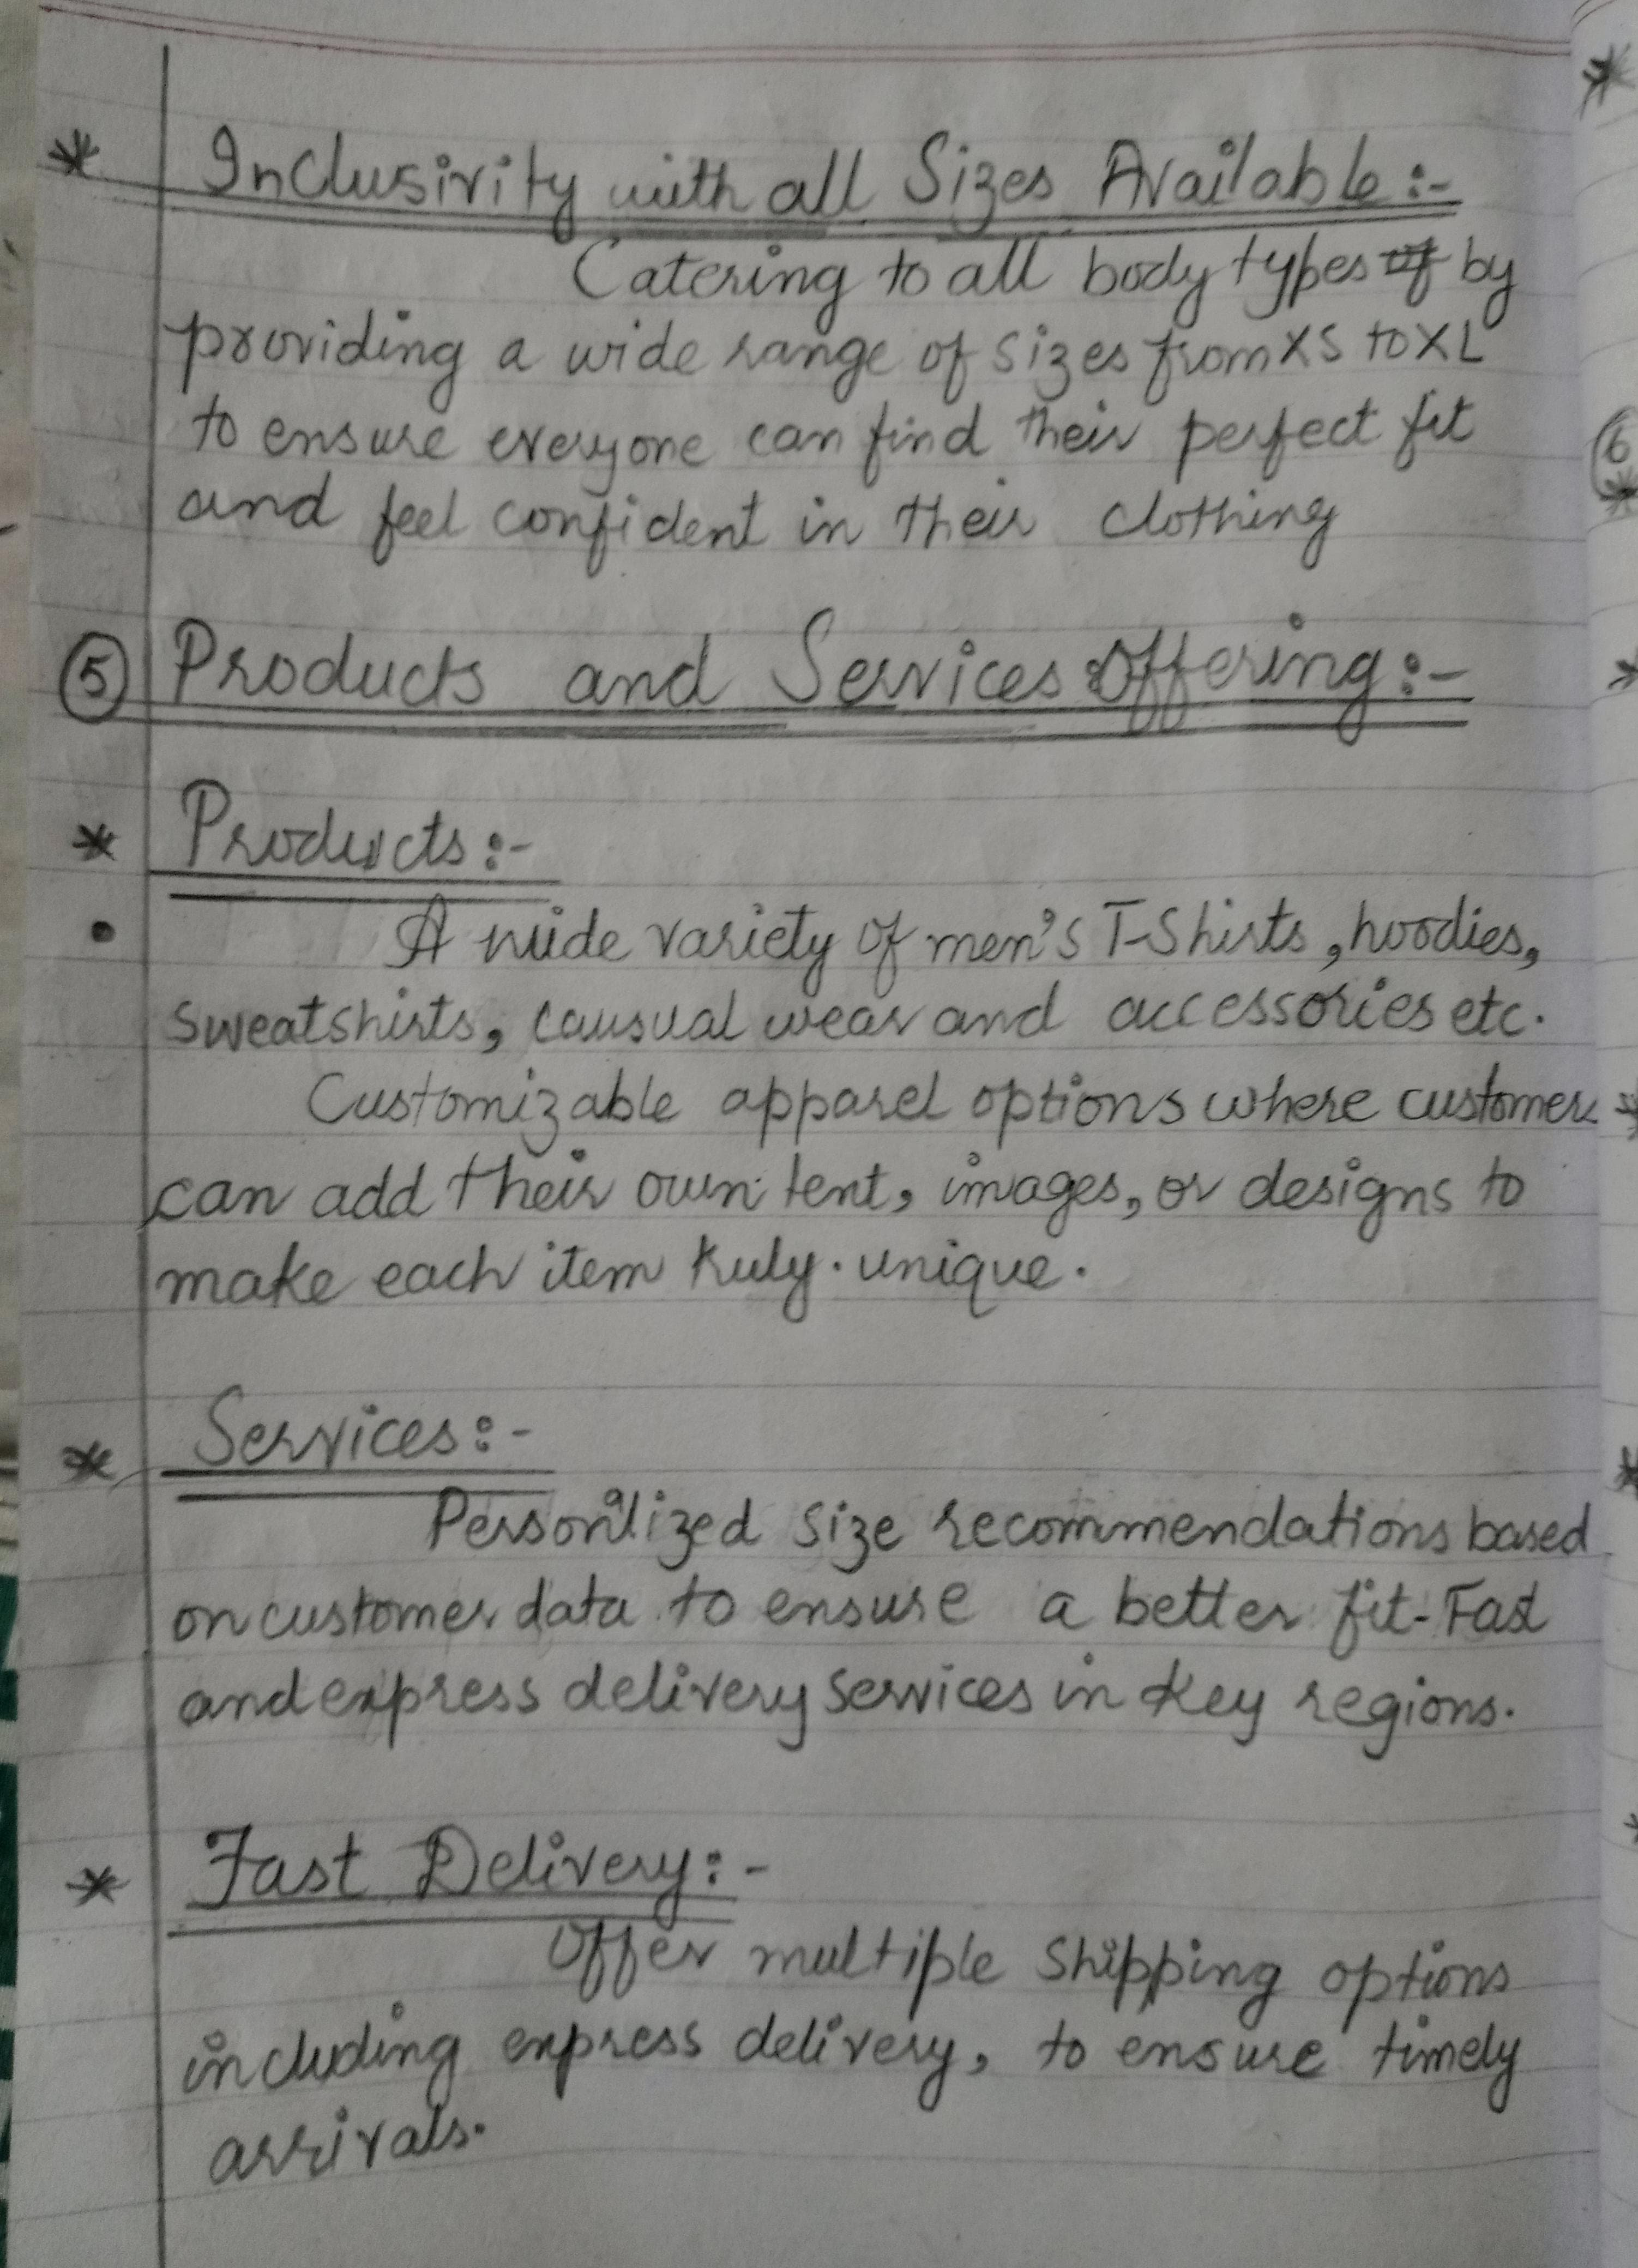 * Inclusivity with all Sizes Available:-
Catering to all body types of by
providing a wide range of sizes from XS to XL
to ensure everyone can find their perfect fit
and feel confident in their clothing
⑤ Products and Services Offering:-
* Products:-
• A wide variety of men's T-Shirts, hoodies,
sweatshirts, causual wear and accessories etc.
Customizable apparel options where customer
can add their own tent, images, or designs to
make each item truly. unique.
* Services:-
Personilized size recommendations based
on customer data to ensure a better fit- Fast
and express delivery services in key regions.
* Fast Delivery:-
Offer multiple Shipping options
including express delivery, to ensure timely
arrivals.
*
6
*
*
*
*
*